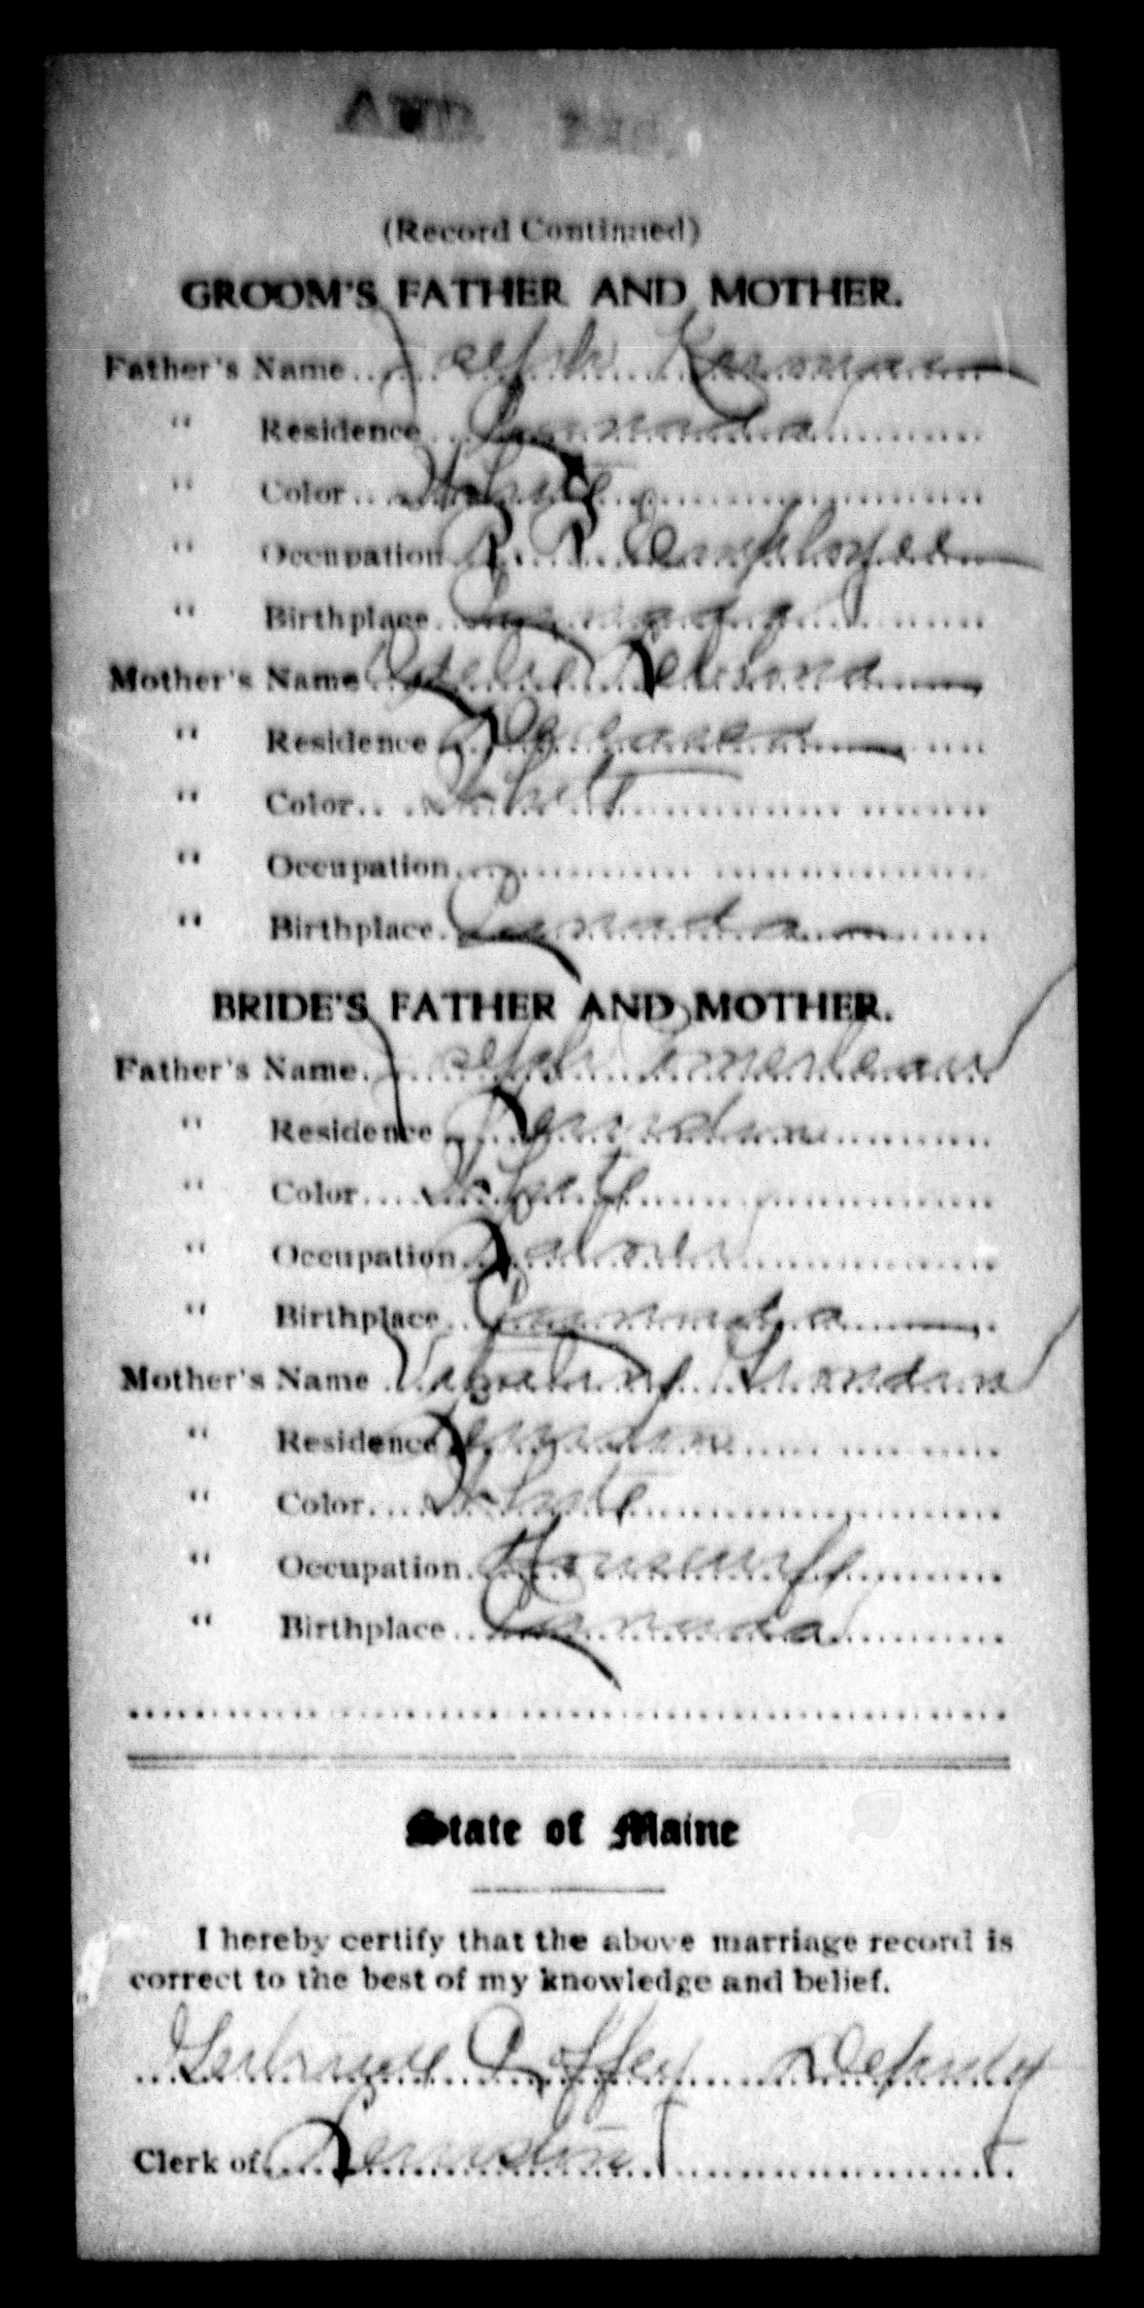 (Record Continued)
GROOM'S FATHER AND MOTHER.
Father's Name Joseph
" Residence Canada
" Color White
" Occupation R. R. Employee
" Birthplace Canada
Mother's Name
" Residence Deceased
" Color White
" Occupation
" Birthplace Canada
BRIDE'S FATHER AND MOTHER.
Father's Name Joseph Pomerleau
" Residence Lewiston
" Color White
" Occupation Laborer
" Birthplace Canada
Mother's Name Grondin
" Residence Lewiston
" Color White
" Occupation Housewife
" Birthplace Canada
State of Maine
I hereby certify that the above marriage record is
correct to the best of my knowledge and belief.
Gertrude Coffey Deputy
Clerk of Lewiston